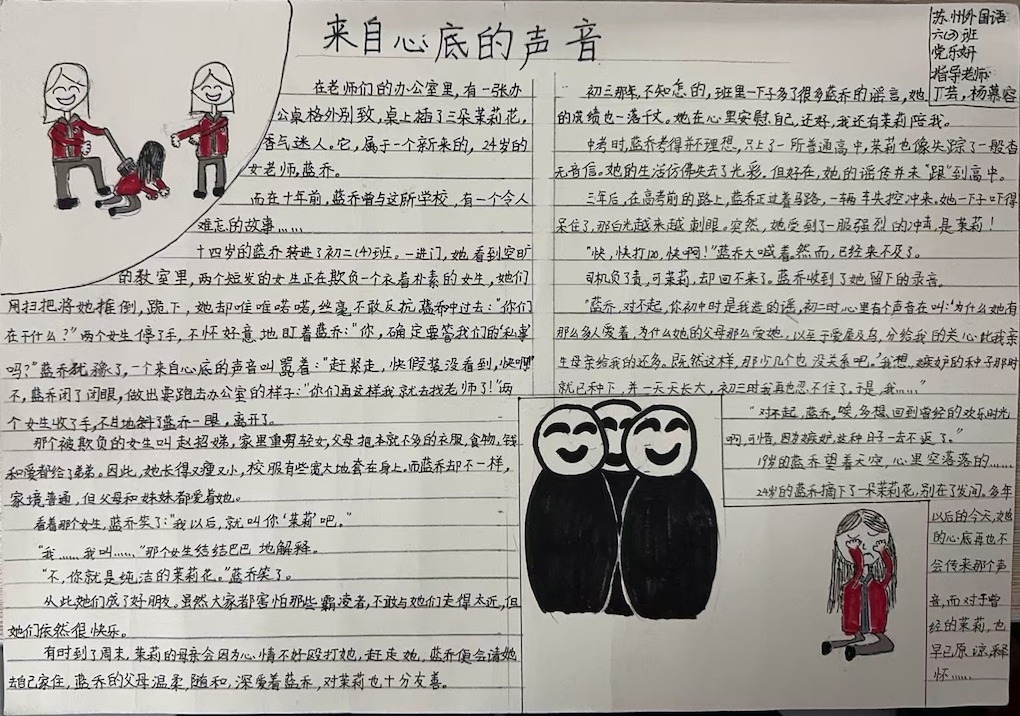 来自心底的声音
苏州外国语
六(3)班
党乐妍
指导老师:
丁芸,杨慕容
在老师们的办公室里,有一张办
公桌格外别致,桌上插了三朵茉莉花,
香气迷人。它,属于一个新来的,24岁的
女老师,蓝乔。
而在十年前,蓝乔曾与这所学校,有一个令人
难忘的故事……
十四岁的蓝乔转进了初二(4)班。一进门,她看到空旷
的教室里,两个短发的女生正在欺负一个衣着朴素的女生,她们
用扫把将她推倒,跪下,她却唯唯喏喏,丝毫不敢反抗,蓝乔冲过去:“你们
在干什么?”两个女生停了手,不怀好意地盯着蓝乔:“你,确定要管我们的私事
吗?”蓝乔犹豫了,一个来自心底的声音叫嚣着:“赶紧走,快假装没看到,快啊!”
不,蓝乔闭了闭眼,做出要跑去办公室的样子:“你们再这样我就去找老师了!”两
个女生收了手,不甘地斜了蓝乔一眼,离开了。
那个被欺负的女生叫赵招娣,家里重男轻女,父母把本就不多的衣服,食物,钱
和爱都给了弟弟。因此,她长得又瘦又小,校服有些宽大地套在身上。而蓝乔却不一样,
家境普通,但父母和妹妹都爱着她。
看着那个女生,蓝乔笑了:“我以后,就叫你‘茉莉’吧。”
“我……我叫……”那个女生结结巴巴地解释。
“不,你就是纯洁的茉莉花。”蓝乔笑了。
从此她们成了好朋友。虽然大家都害怕那些霸凌者,不敢与她们走得太近,但
她们依然很快乐。
有时到了周末,茉莉的母亲会因为心情不好殴打她,赶走她,蓝乔便会请她
去自己家住,蓝乔的父母温柔,随和,深爱着蓝乔,对茉莉也十分友善。
初三那年,不知怎的,班里一下子多了很多蓝乔的谣言,她
的成绩也一落千丈。她在心里安慰自己,还好,我还有茉莉陪我。
中考时,蓝乔考得并不理想,只上了一所普通高中,茉莉也像失踪了一般杳
无音信。她的生活仿佛失去了光彩。但好在,她的谣传并未“跟”到高中。
三年后,在高考前的路上,蓝乔正过着马路,一辆车失控冲来。她一下子吓得
呆住了,那白光越来越刺眼。突然,她受到了一股强烈的冲击,是茉莉!
“快,快打120,快啊!”蓝乔大喊着。然而,已经来不及了。
司机负了责,可茉莉,却回不来了。蓝乔收到了她留下的录音。
“蓝乔,对不起,你初中时是我造的谣,初二时心里有个声音在叫:‘为什么她有
那么多人爱着,为什么她的父母那么爱她,以至于爱屋及乌,分给我的关心比我亲
生母亲给我的还多。既然这样,那少几个也没关系吧。’我想,嫉妒的种子那时
就已种下,并一天天长大,初三时我再也忍不住了,于是,我……”
“对不起,蓝乔。唉,多想回到曾经的欢乐时光
啊,可惜,因为嫉妒,这种日子一去不返了。”
19岁的蓝乔望着天空,心里空落落的……
24岁的蓝乔摘下了一朵茉莉花,别在了发间。多年
以后的今天,她
的心底再也不
会传来那个声
音,而对于曾
经的茉莉,也
早已原谅,释
怀……